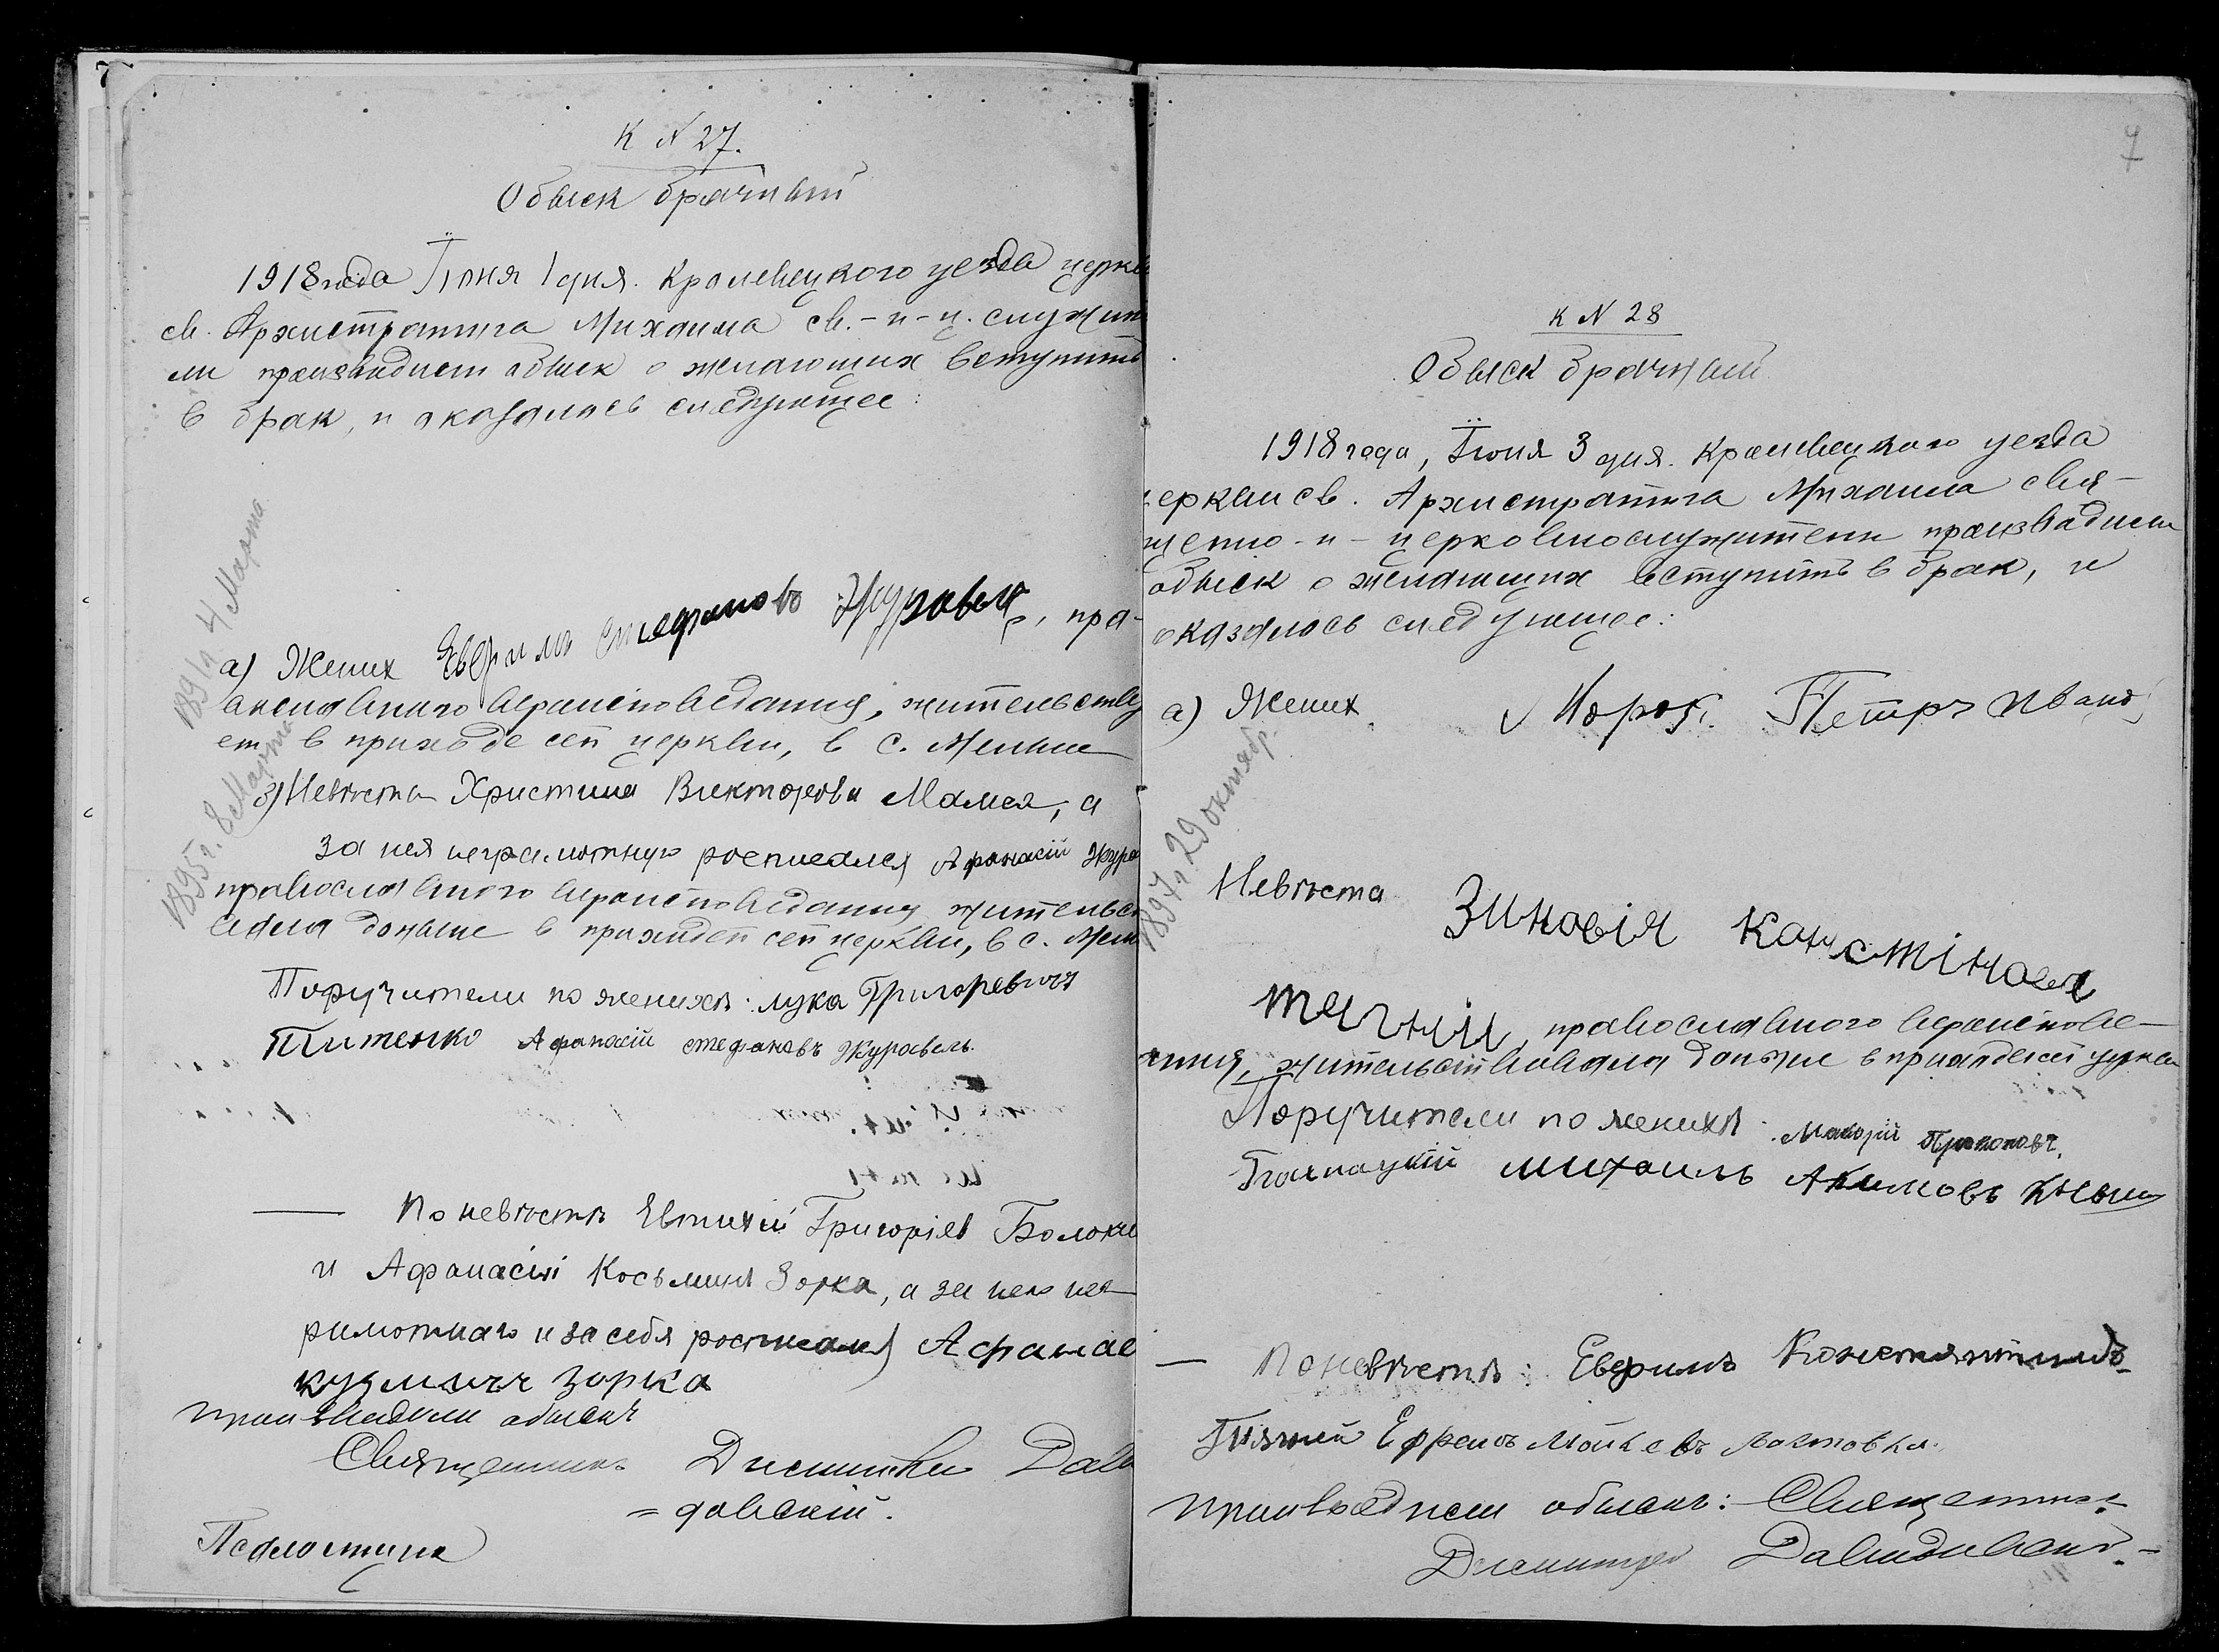 7
К № 27.
Обыск брачный
1918 года Їюня 1 дня. Кролевецкого уезда церкв
св. Архистратига Михаила св.-и-ц. служит
ли производили обыск о желающих вступить
в брак, и оказалось следующее:
1891 г. 4 Марта
а) Жених Евфимъ Стефановъ Журавель, пра-
вославного вероисповедания, жительству
ет в приходе сей церкви, в с.
1895 г. 8 Марта
Невѣста Христина Викторова Мамея, а
за нея неграмотную росписался Афанасій Жура
православного вероисповедания жительст
вовала доныне в приходе сей церкви, в с.
Поручители по женихѣ: лука Григоревичъ
Титенко Афанасій стефановъ Журавель.
— По невѣстѣ Евтихій Григоріев
и Афанасій Косьмин Зорка, а за него нег
рамотнаго и за себя росписался Афанас
кузмичъ Зорка
производили обыскъ
Священникъ Димитрий Дави
= довский.
Псаломщик
7
К № 28
Обыск брачный
1918 года, Їюня 3 дня. Кролевецкого уезда
церкви св. Архистратига Михаила свя-
щенно-и-церковнослужители производили
обыск о желающих вступить в брак, и
оказалось следующее:
а) Жених Мороз Петръ Ивано
1897 г. 29 октябр.
Невѣста Зиновія Констінова
православного вероисповеда-
ния, жительствовала доныне в приходе сей церкви
Поручители по женихѣ Макарій Прокоповъ
михаилъ Акимовъ
— По невѣстѣ: Евфимъ Константиновъ
Ефремъ
производили обыскъ: Священникъ
Димитрий Давидовский